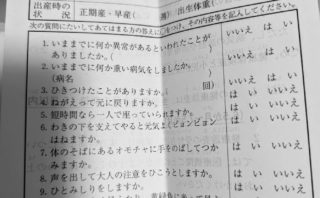 出産時の状況 正期産・早産( 週) 出生体重(
次の質問にたいしてあてはまる方の答えに○をつけ、その内容等を記入してください。
1. いままでに何か異常があるといわれたことがありますか。( ) いいえ はい
2. いままでに何か重い病気をしましたか。 いいえ はい
(病名 )
3. ひきつけたことがありますか。( 回) いいえ はい
4. ねがえって元に戻りますか。 はい いいえ
5. 短時間なら一人で座っていられますか。 はい いいえ
6. わきの下を支えてやると元気よくピョンピョン はい いいえ
はねますか。
7. 体のそばにあるオモチャに手をのばしてつか はい いいえ
みますか。
8. 声を出して大人の注意をひこうとしますか。 はい いいえ
9. ひとみしりをしますか。 はい いいえ